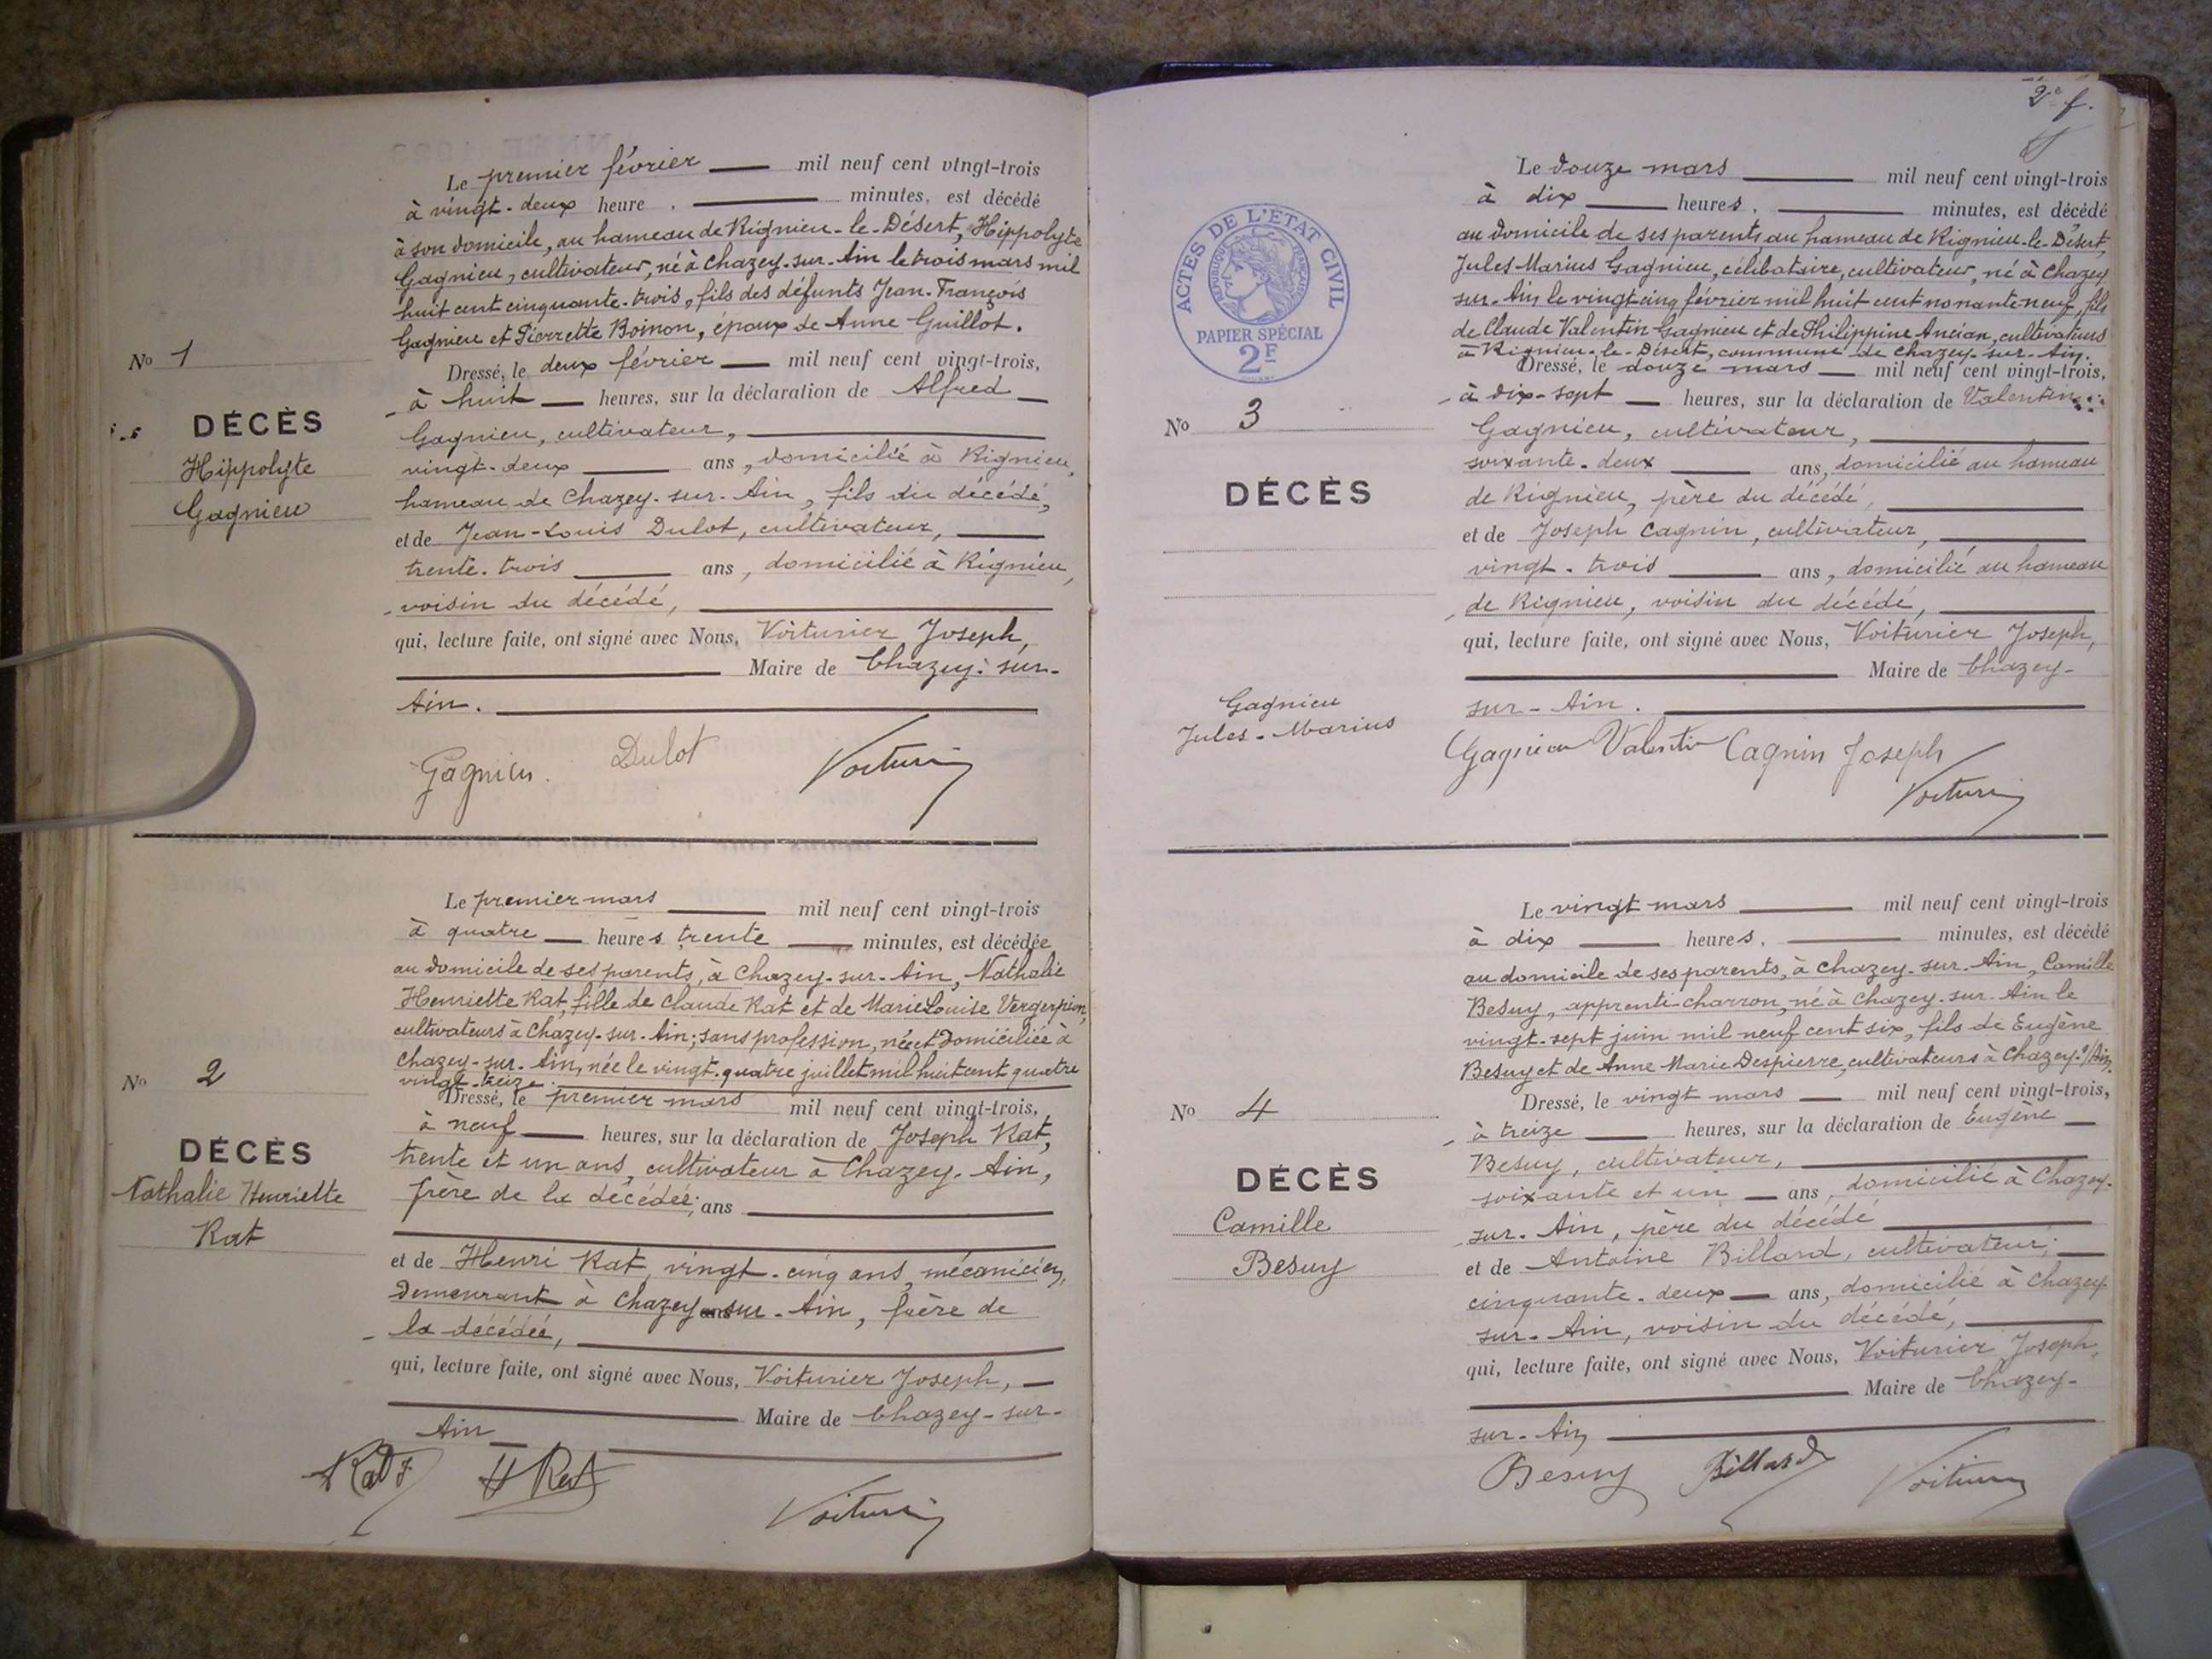 Le premier février mil neuf cent vingt-trois
à vingt-deux heure . minutes, est décédé
à son domicile, au hameau de Rignieu-le-Désert, Hippolyte
Gagnieu, cultivateur, né à Chazey-sur-Ain le trois mars mil
huit cent cinquante-trois, fils des défunts Jean-François
Gagnieu et Pierrette Boinon, époux de Anne Guillot.
No 1
Dressé, le deux février mil neuf cent vingt-trois,
à huit heures, sur la déclaration de Alfred
DÉCÈS
Hippolyte
Gagnieu
Gagnieu, cultivateur,
vingt-deux ans, domicilié à Rignieu,
hameau de Chazey-sur-Ain, fils du décédé,
et de Jean-Louis Dulot, cultivateur,
trente-trois ans, domicilié à Rignieu,
voisin du décédé,
qui, lecture faite, ont signé avec Nous, Voiturier Joseph,
Maire de Chazey-sur-
Ain.
Gagnieu. Dulot Voiturier
Le premier mars mil neuf cent vingt-trois
à quatre heures trente minutes, est décédée
au domicile de ses parents, à Chazey-sur-Ain, Nathalie
Henriette Rat, fille de Claude Rat et de Marie Louise Vergerpion,
cultivateurs à Chazey-sur-Ain; sans profession, née et domiciliée à
Chazey-sur-Ain, née le vingt-quatre juillet mil huit cent quatre
vingt-treize.
No 2
Dressé, le premier mars mil neuf cent vingt-trois,
à neuf heures, sur la déclaration de Joseph Rat,
DÉCÈS
Nathalie Henriette
Rat
trente et un ans, cultivateur à Chazey-Ain,
frère de la décédée; ans
et de Henri Rat, vingt-cinq ans, mécanicien,
demeurant à Chazey-sur-Ain, frère de
la décédée,
qui, lecture faite, ont signé avec Nous, Voiturier Joseph,
Maire de Chazey-sur-
Ain
Rat J H Rat
Voiturier
2e f.
ACTES DE L'ÉTAT CIVIL
RÉPUBLIQUE FRANÇAISE
PAPIER SPÉCIAL
2F
Le douze mars mil neuf cent vingt-trois
à dix heures, minutes, est décédé
au domicile de ses parents, au hameau de Rignieu-le-Désert,
Jules Marius Gagnieu, célibataire, cultivateur, né à Chazey
sur-Ain le vingt-cinq février mil huit cent nonante neuf, fils
de Claude Valentin Gagnieu et de Philippine Ancian, cultivateurs
à Rignieu-le-Désert, commune de Chazey-sur-Ain.
Dressé, le douze mars mil neuf cent vingt-trois,
à dix-sept heures, sur la déclaration de Valentin
No 3
DÉCÈS
Gagnieu
Jules-Marius
Gagnieu, cultivateur,
soixante-deux ans, domicilié au hameau
de Rignieu, père du décédé,
et de Joseph Cagnin, cultivateur,
vingt-trois ans, domicilié au hameau
de Rignieu, voisin du décédé,
qui, lecture faite, ont signé avec Nous, Voiturier Joseph,
Maire de Chazey-
sur-Ain.
Gagnieu Valentin Cagnin Joseph
Voiturier
Le vingt mars mil neuf cent vingt-trois
à dix heures, minutes, est décédé
au domicile de ses parents, à Chazey-sur-Ain, Camille
Besuy, apprenti-charron, né à Chazey-sur-Ain le
vingt-sept juin mil neuf cent six, fils de Eugène
Besuy et de Anne Marie Despierre, cultivateurs à Chazey-s/Ain.
No 4
DÉCÈS
Camille
Besuy
Dressé, le vingt mars mil neuf cent vingt-trois,
à treize heures, sur la déclaration de Eugène
Besuy, cultivateur,
soixante et un ans, domicilié à Chazey-
sur-Ain, père du décédé
et de Antoine Billard, cultivateur,
cinquante-deux ans, domicilié à Chazey
sur-Ain, voisin du décédé,
qui, lecture faite, ont signé avec Nous, Voiturier Joseph,
Maire de Chazey-
sur-Ain
Besuy Billard Voiturier